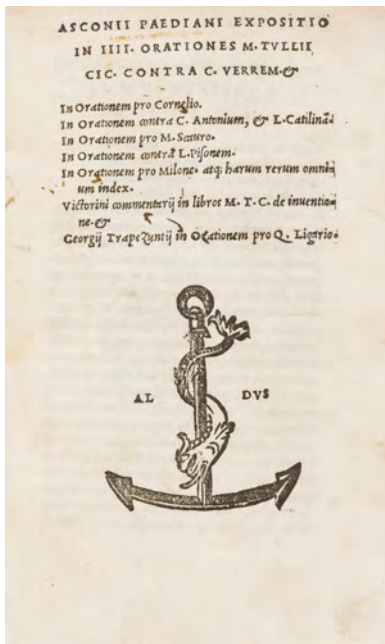 ASCONII PAEDIANI EXPOSITIO
IN IIII. ORATIONES M. TVLLII
CIC. CONTRA C. VERREM.&
In Orationem pro Cornelio.
In Orationem contra C. Antonium, & L. Catilinā.
In Orationem pro M. Scauro.
In Orationem contra L. Pisonem.
In Orationem pro Milone. atq; harum rerum omni-
um index.
Victorini commentarij in libros M. T. C. de inuentio-
ne. &
Georgij Trapezuntij in Orationem pro Q. Ligario.
AL DVS